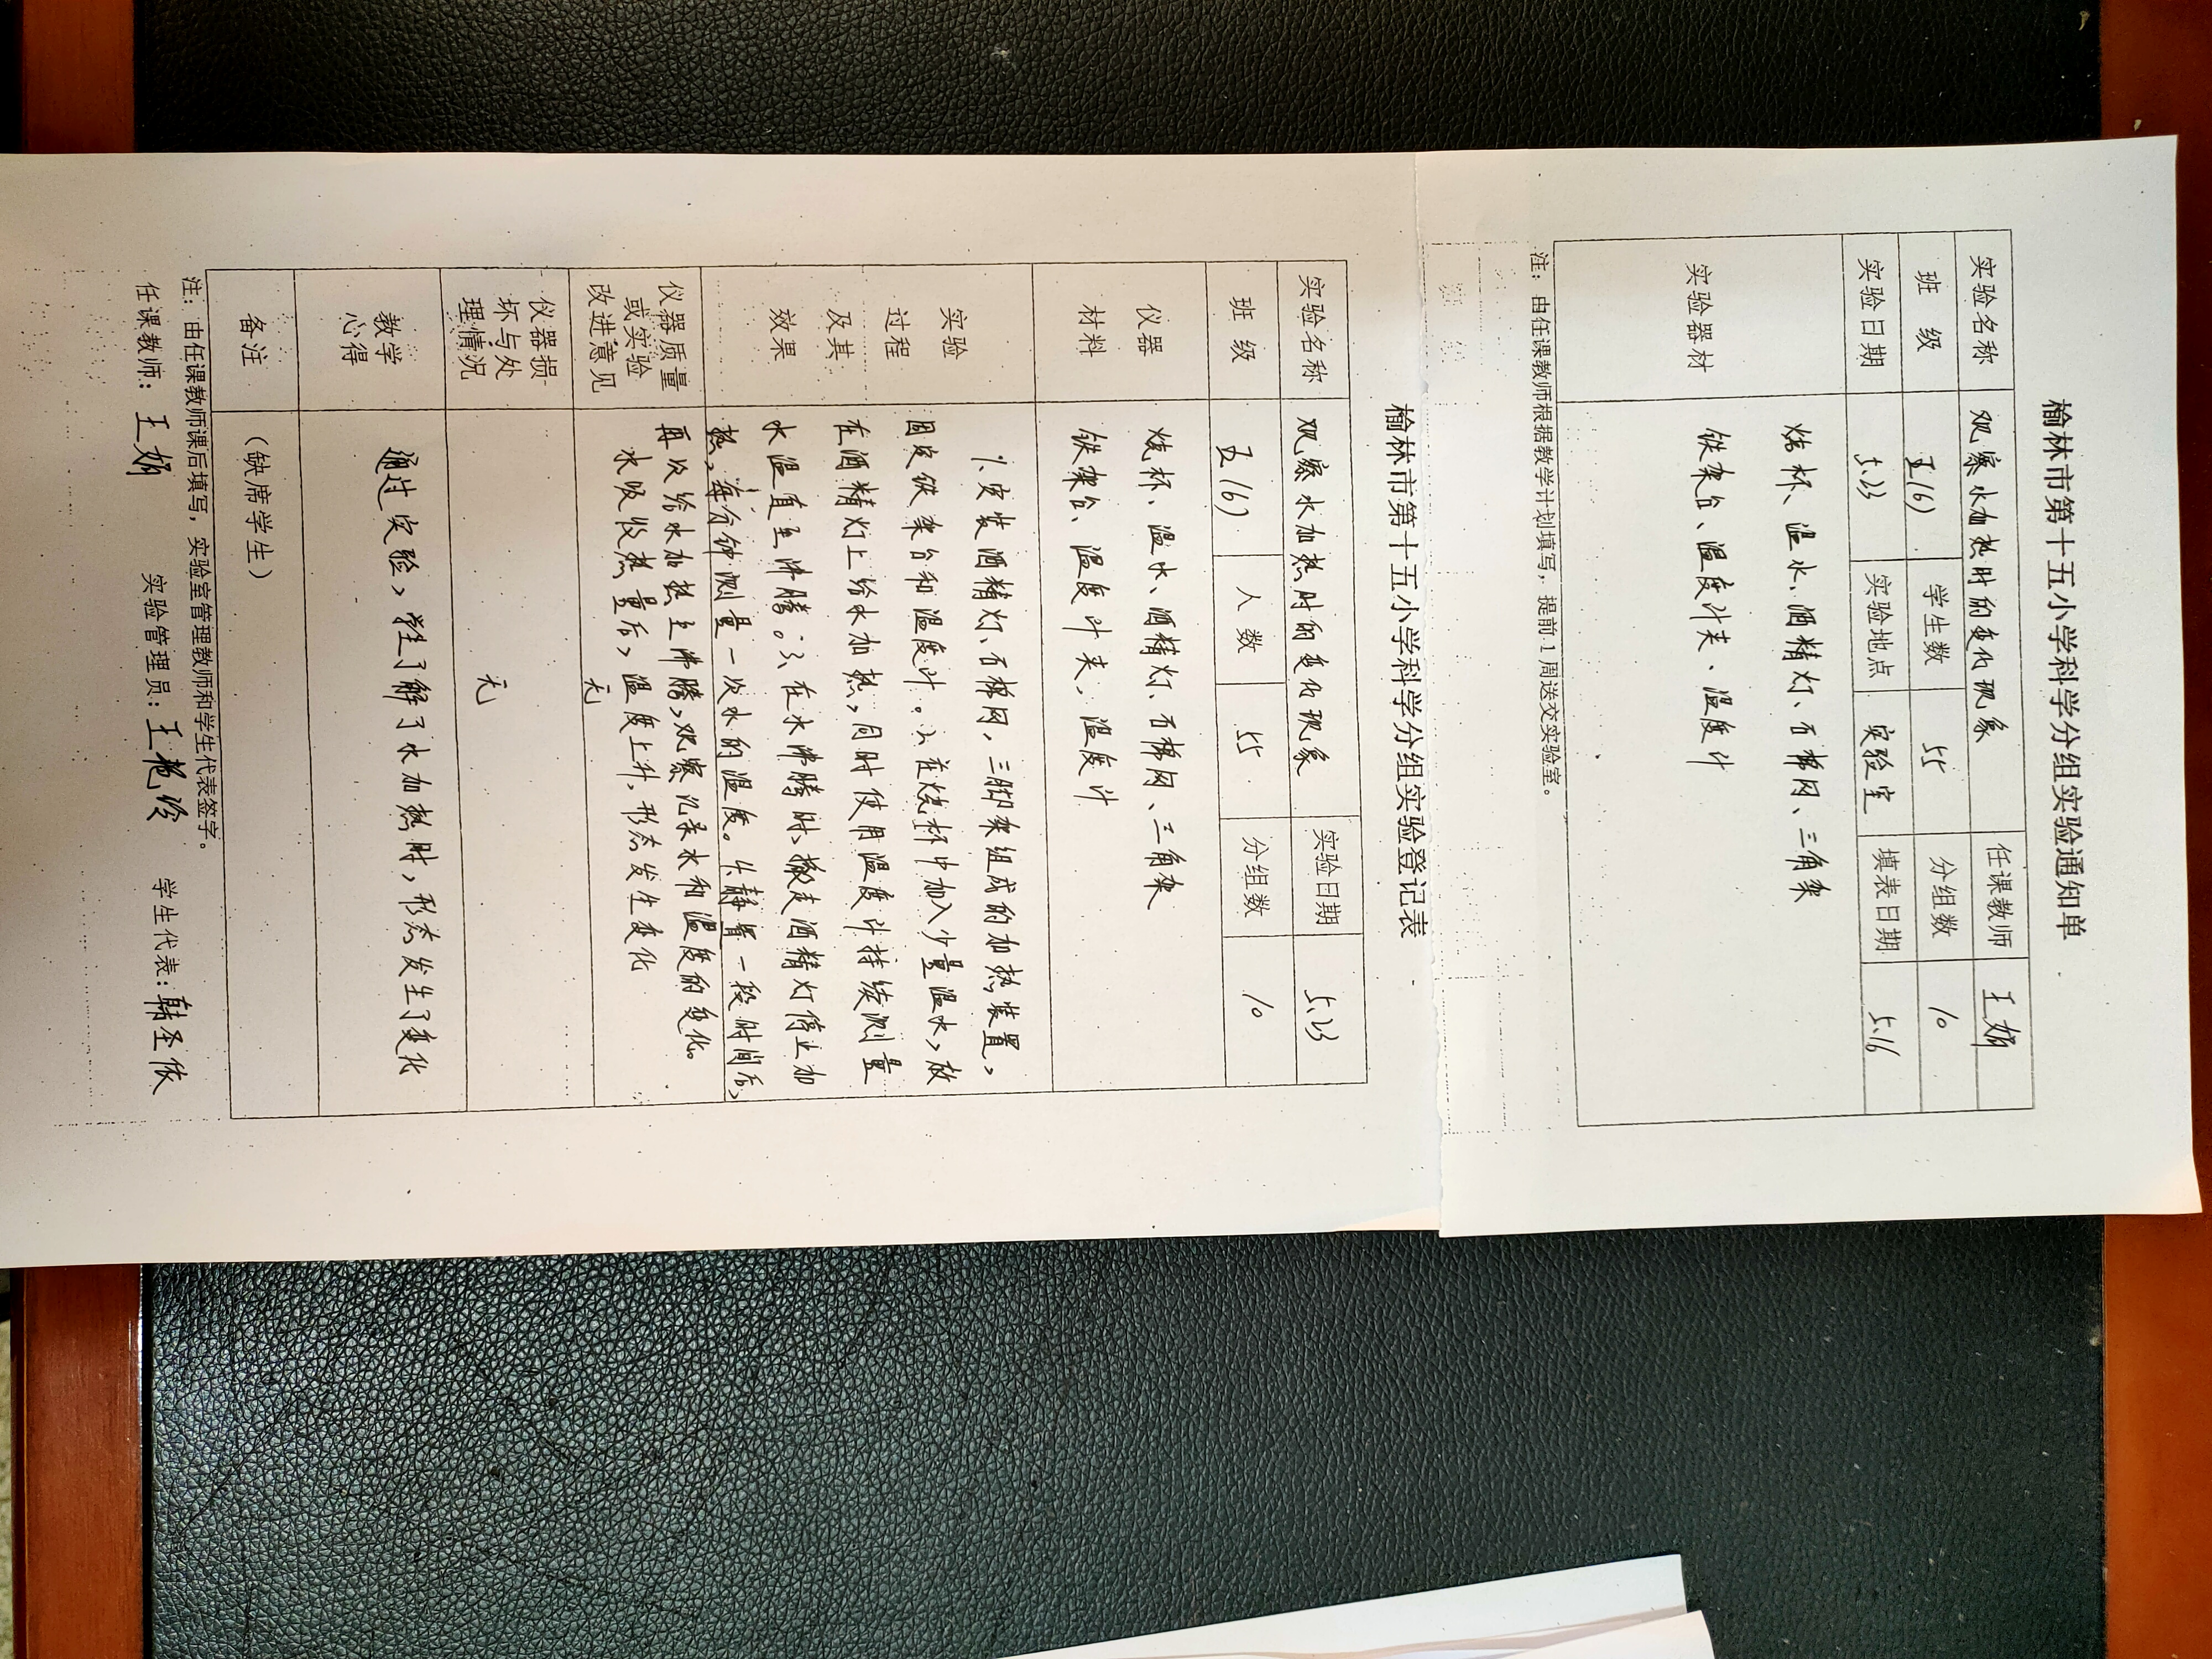 榆林市第十五小学科学分组实验通知单
实验名称 观察水加热时的变化现象 任课教师 王娟
班 级 五(6) 学生数 55 分组数 10
实验日期 5.23 实验地点 实验室 填表日期 5.16
实验器材 烧杯、温水、酒精灯、石棉网、三角架
铁架台、温度计夹、温度计
注：由任课教师根据教学计划填写，提前1周送交实验室。
榆林市第十五小学科学分组实验登记表
实验名称 观察水加热时的变化现象 实验日期 5.23
班 级 五(6) 人 数 55 分组数 10
仪器 材料 烧杯、温水、酒精灯、石棉网、三角架
铁架台、温度计夹、温度计
实验 过程 及其 效果 1、安装酒精灯、石棉网，三脚架组成的加热装置，
固定铁架台和温度计。2、在烧杯中加入少量温水，放
在酒精灯上给水加热，同时使用温度计持续测量
水温直至沸腾。3、在水沸腾时、撤走酒精灯停止加
热，每分钟测量一次水的温度。4、静置一段时间后，
再次给水加热至沸腾，观察记录水和温度的变化。
水吸收热量后，温度上升，形态发生变化
仪器质量 或实验 改进意见 无
仪器损 坏与处 理情况 无
教学 心得 通过实验，学生了解了水加热时，形态发生了变化
备注 （缺席学生）
注：由任课教师课后填写，实验室管理教师和学生代表签字。
任课教师：王娟 实验管理员：王艳玲 学生代表：韩圣依